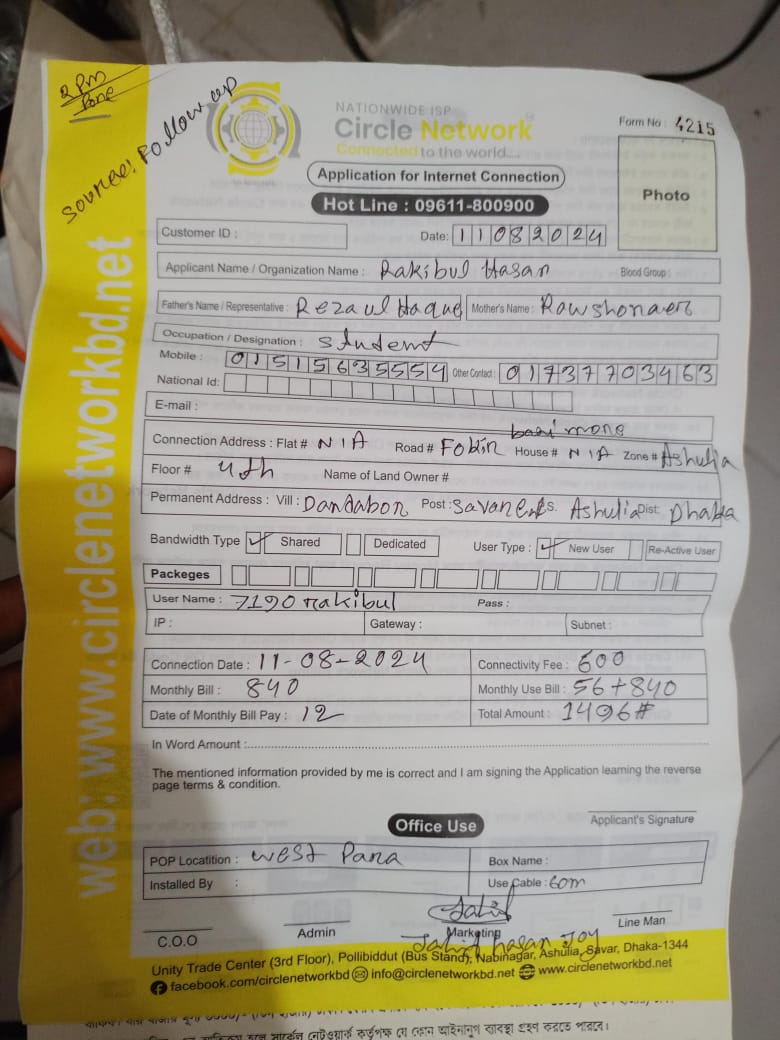 2 Pm
Done
Source: Follow up
NATIONWIDE ISP
Circle Network
Connected to the world...
Form No : 4215
Application for Internet Connection
Photo
Hot Line : 09611-800900
Customer ID :
Date: 11082024
Applicant Name / Organization Name : Rakibul Hasan Blood Group :
Father's Name / Representative : Rezaul Haque Mother's Name : Rowshonara
Occupation / Designation : Student
Mobile : 01515635554 Other Contact : 01737703463
National Id:
E-mail :
Connection Address : Flat # N/A Road # Fokir bari more House # N/A Zone # Ashulia
Floor # 4th Name of Land Owner #
Permanent Address : Vill : Dandabor Post : Savar P.S. Ashulia Dist: Dhaka
Bandwidth Type Shared Dedicated User Type : New User Re-Active User
Packeges
User Name : 7190rakibul Pass :
IP : Gateway : Subnet :
Connection Date : 11-08-2024 Connectivity Fee : 600
Monthly Bill : 840 Monthly Use Bill : 56+840
Date of Monthly Bill Pay : 12 Total Amount : 1496#
In Word Amount :
The mentioned information provided by me is correct and I am signing the Application learning the reverse
page terms & condition.
Applicant's Signature
Office Use
POP Locatition : West Para Box Name :
Installed By : Use Cable : 60m
Jahid
C.O.O Admin Marketing Line Man
Jahid hasan Joy
Unity Trade Center (3rd Floor), Pollibiddut (Bus Stand), Nabinagar, Ashulia, Savar, Dhaka-1344
facebook.com/circlenetworkbd info@circlenetworkbd.net www.circlenetworkbd.net
web: www.circlenetworkbd.net